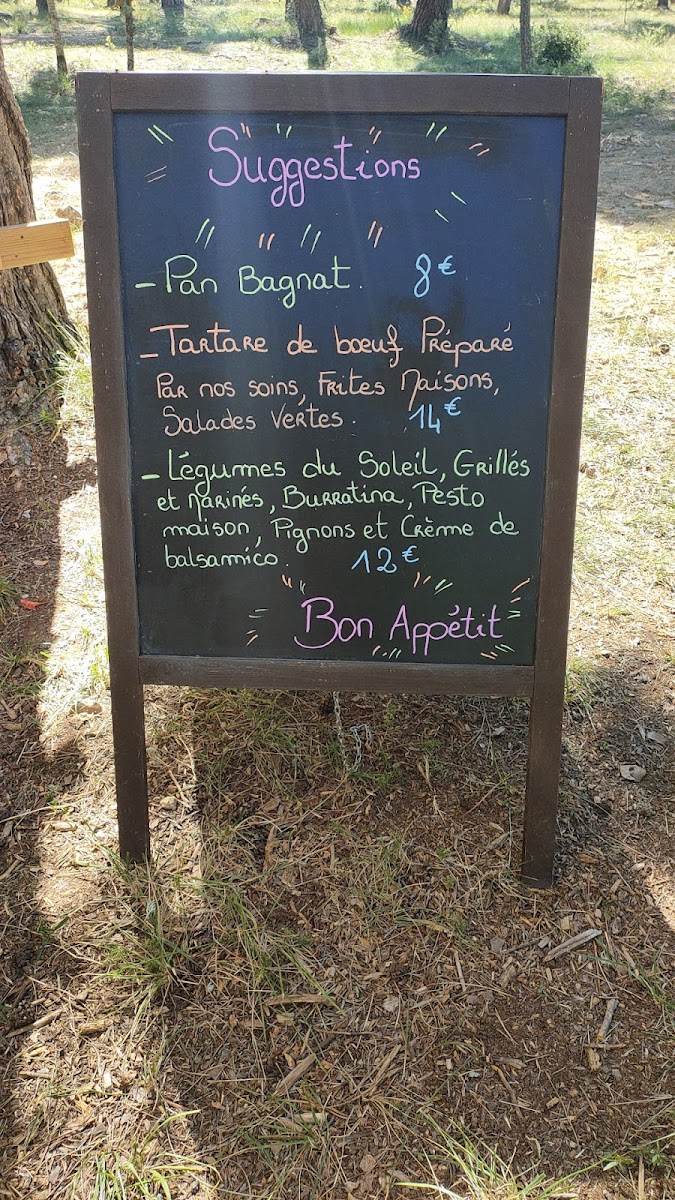 Suggestions
- Pan Bagnat. 8€
- Tartare de bœuf Préparé
Par nos soins, Frites Maisons,
Salades vertes. 14€
- Légumes du Soleil, Grillés
et Marinés, Burratina, Pesto
maison, Pignons et Crème de
balsamico. 12€
Bon Appétit